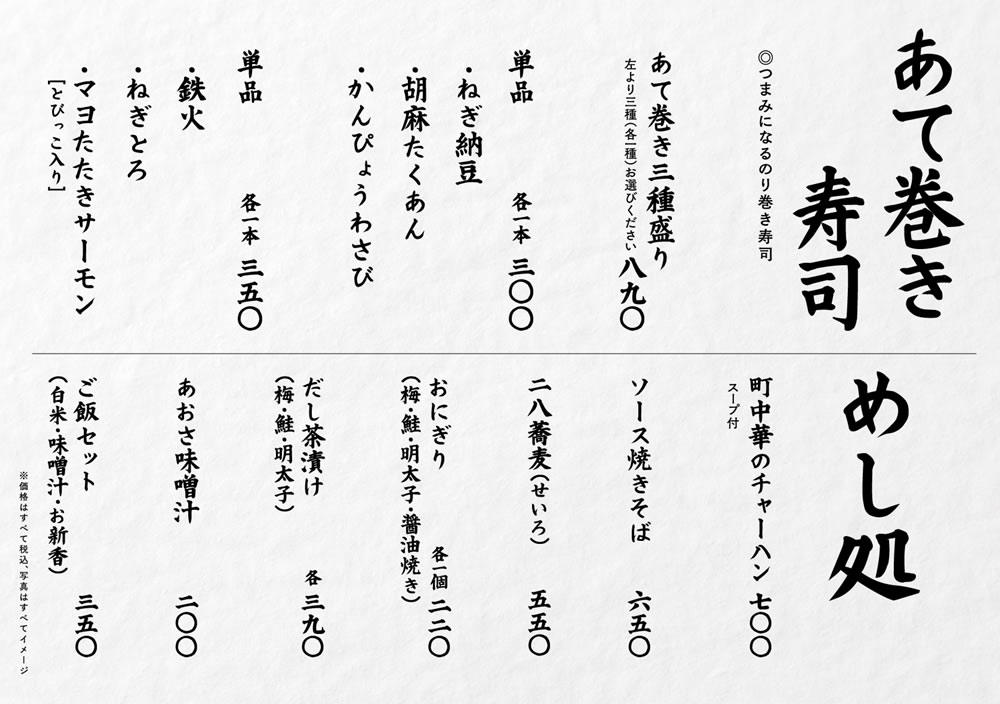 あて巻き
寿司
◎つまみになるのり巻き寿司
あて巻き三種盛り 八九〇
左より三種(各一種)お選びください
単品 各一本 三〇〇
・ねぎ納豆
・胡麻たくあん
・かんぴょうわさび
単品 各一本 三五〇
・鉄火
・ねぎとろ
・マヨたたきサーモン
[とびっこ入り]
めし処
町中華のチャーハン 七〇〇
スープ付
ソース焼きそば 六五〇
二八蕎麦(せいろ) 五五〇
おにぎり 各一個 二二〇
(梅・鮭・明太子・醤油焼き)
だし茶漬け 各 三九〇
(梅・鮭・明太子)
あおさ味噌汁 二〇〇
ご飯セット 三五〇
(白米・味噌汁・お新香)
※価格はすべて税込、写真はすべてイメージ